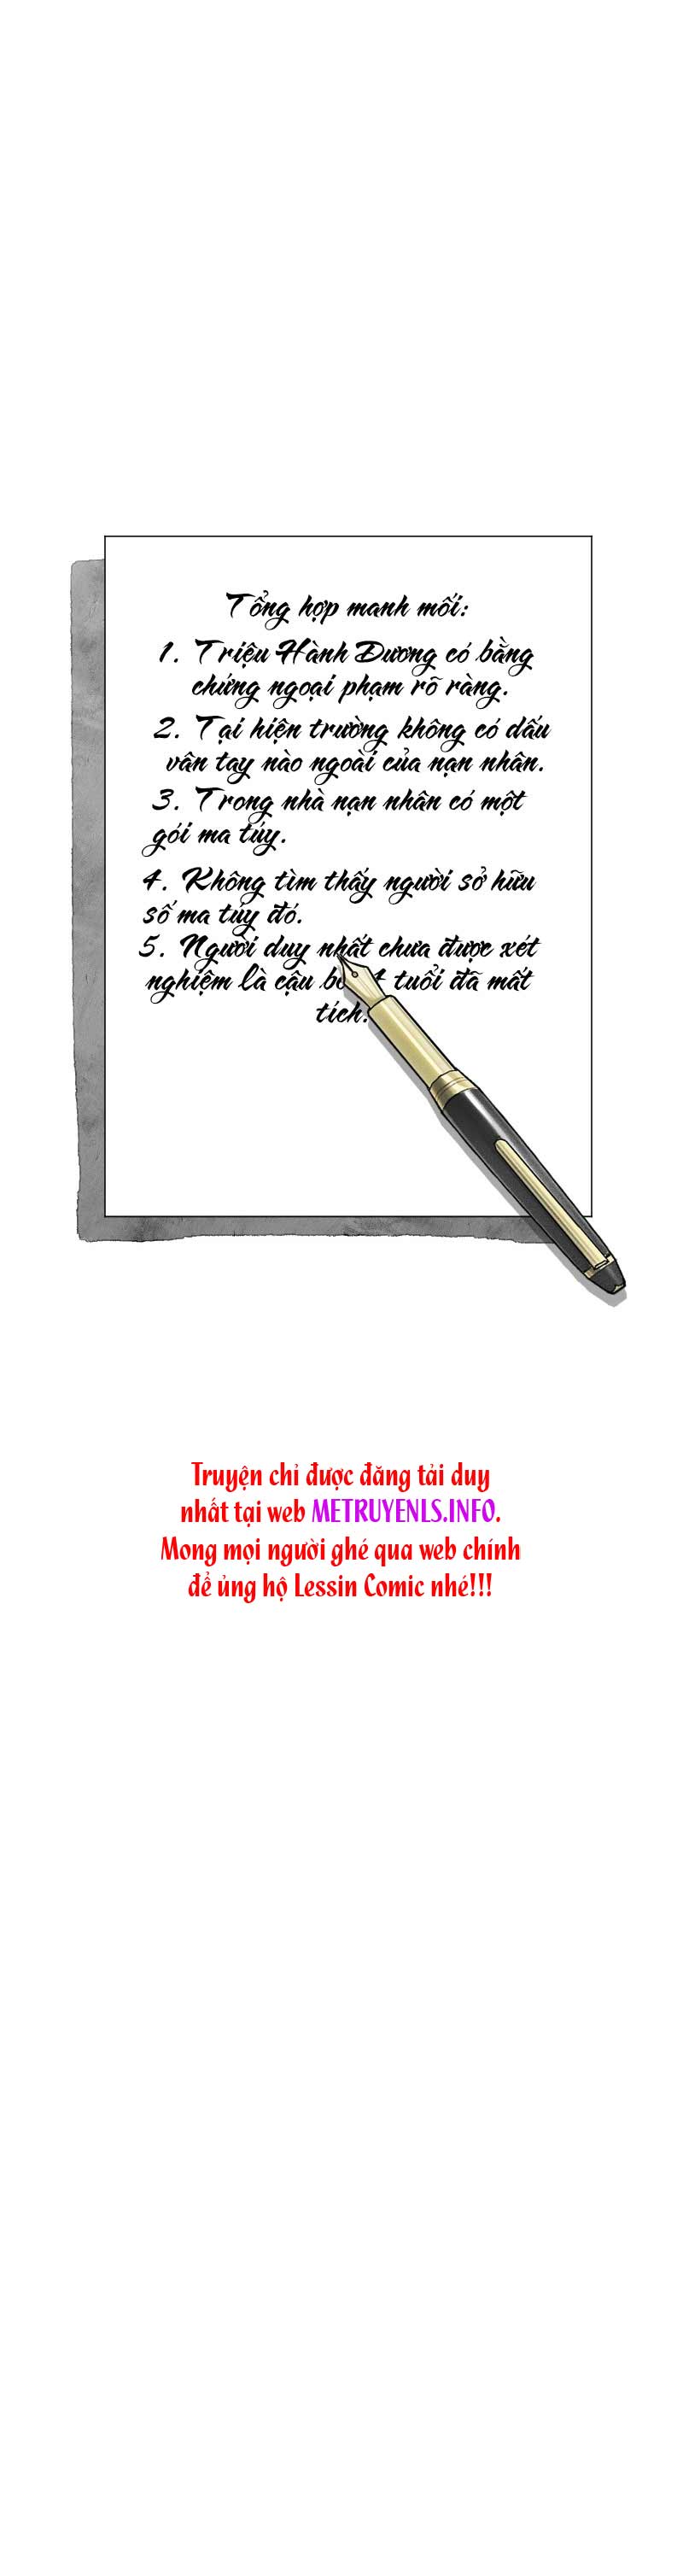 Tổng hợp manh mối:
1. Triệu Hành Dương có bằng
chứng ngoại phạm rõ ràng.
2. Tại hiện trường không có dấu
vân tay nào ngoài của nạn nhân.
3. Trong nhà nạn nhân có một
gói ma túy.
4. Không tìm thấy người sở hữu
số ma túy đó.
5. Người duy nhất chưa được xét
nghiệm là cậu 4 tuổi đã mất
tích.
Truyện chỉ được đăng tải duy
nhất tại web METRUYENLS.INFO.
Mong mọi người ghé qua web chính
để ủng hộ Lessin Comic nhé!!!